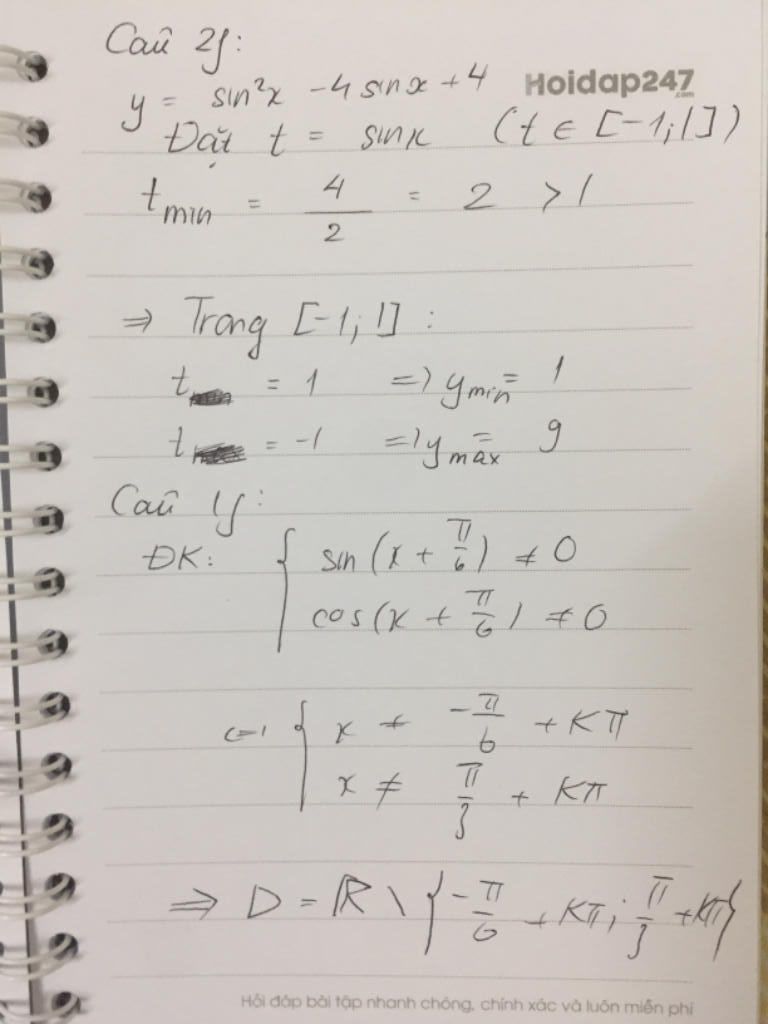 Câu 2):
Hoidap247
.com
y = sin²x - 4 sinx + 4
Đặt t = sinx (t ∈ [-1;1])
t min = 4/2 = 2 > 1
⇒ Trong [-1;1] :
t = 1 => y min = 1
t = -1 => y max = 9
Câu 1):
ĐK: { sin(x + π/6) ≠ 0
cos(x + π/6) ≠ 0
<=> { x ≠ -π/6 + Kπ
x ≠ π/3 + Kπ
⇒ D = ℝ \ { -π/6 + Kπ; π/3 + Kπ}
Hỏi đáp bài tập nhanh chóng, chính xác và luôn miễn phí